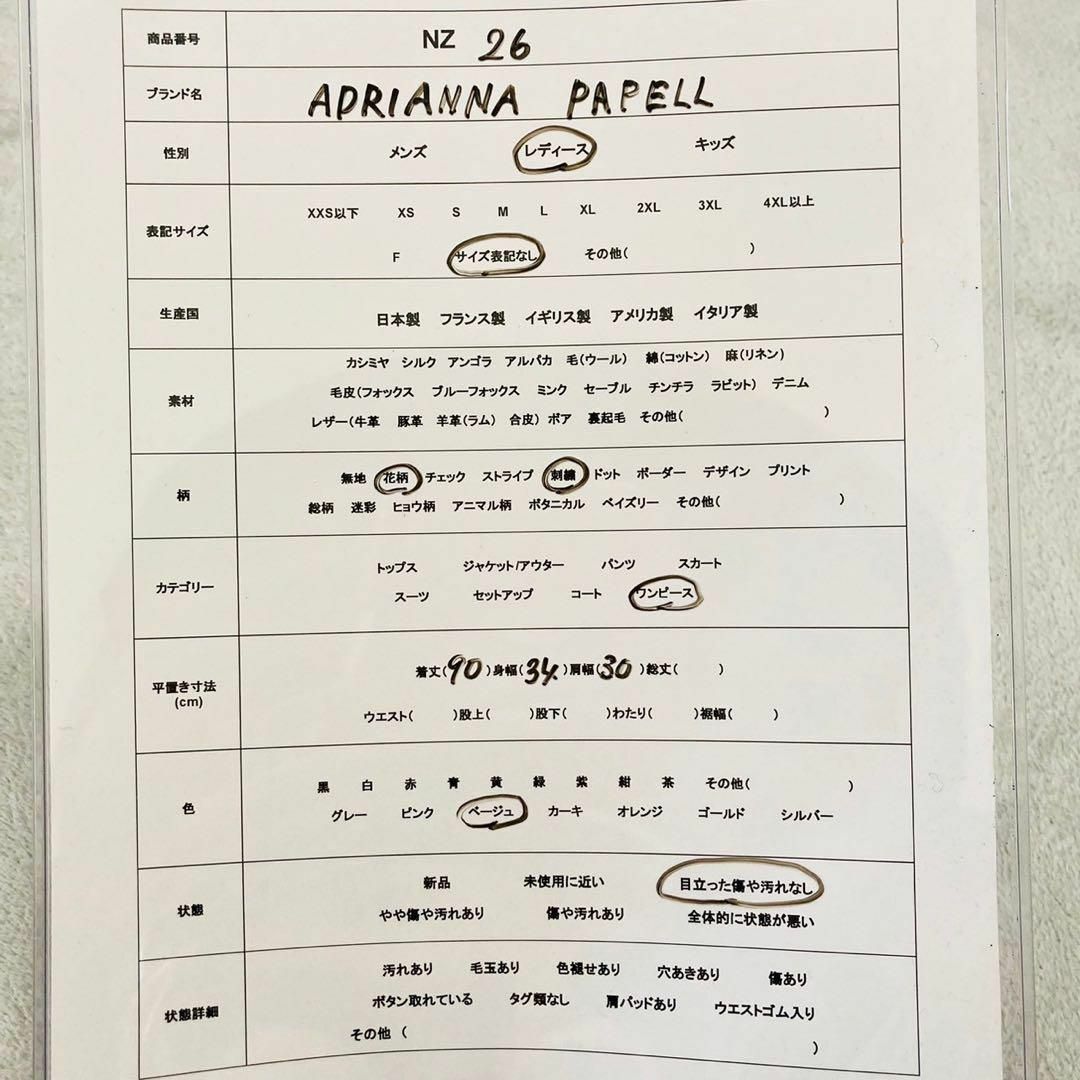 商品番号 NZ 26
ブランド名 ADRIANNA PAPELL
性別 メンズ レディース キッズ
XXS以下 XS S M L XL 2XL 3XL 4XL以上
表記サイズ
F サイズ表記なし その他( )
生産国 日本製 フランス製 イギリス製 アメリカ製 イタリア製
カシミヤ シルク アンゴラ アルパカ 毛(ウール) 綿(コットン) 麻(リネン)
素材 毛皮(フォックス ブルーフォックス ミンク セーブル チンチラ ラビット) デニム
レザー(牛革 豚革 羊革(ラム) 合皮) ボア 裏起毛 その他( )
柄 無地 花柄 チェック ストライプ 刺繍 ドット ボーダー デザイン プリント
総柄 迷彩 ヒョウ柄 アニマル柄 ボタニカル ペイズリー その他( )
カテゴリー トップス ジャケット/アウター パンツ スカート
スーツ セットアップ コート ワンピース
平置き寸法 着丈(90)身幅(34)肩幅(30)総丈( )
(cm) ウエスト( )股上( )股下( )わたり( )裾幅( )
色 黒 白 赤 青 黄 緑 紫 紺 茶 その他( )
グレー ピンク ベージュ カーキ オレンジ ゴールド シルバー
状態 新品 未使用に近い 目立った傷や汚れなし
やや傷や汚れあり 傷や汚れあり 全体的に状態が悪い
汚れあり 毛玉あり 色褪せあり 穴あきあり 傷あり
状態詳細 ボタン取れている タグ類なし 肩パッドあり ウエストゴム入り
その他 ( )